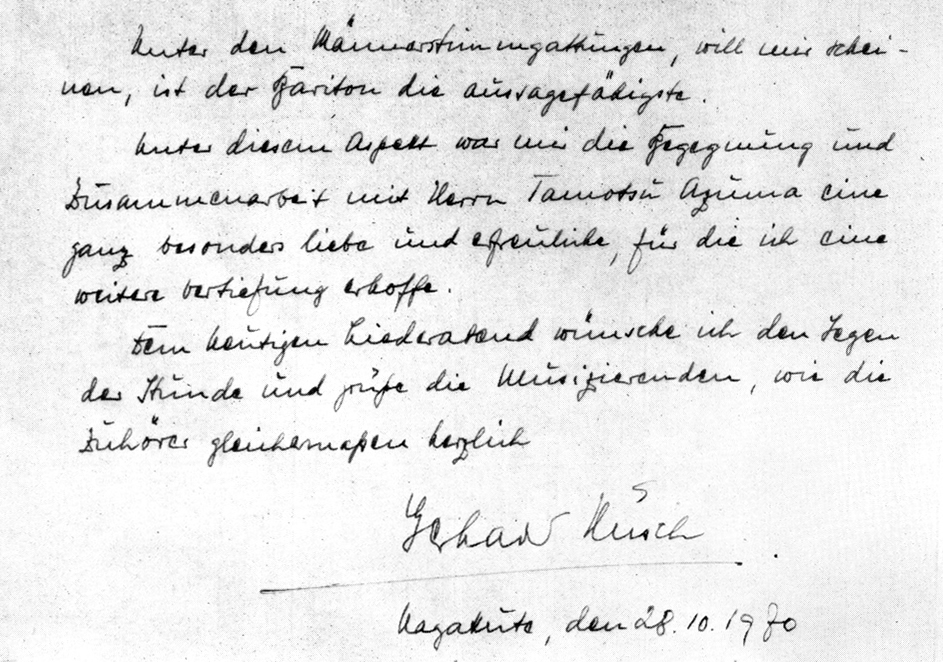 Unter den Männerstimmgattungen, will mir schei-
nen, ist der Bariton die aussagefähigste.
Unter diesem Aspekt war mir die Begegnung und
Zusammenarbeit mit Herrn Tamotsu Azuma eine
ganz besonders liebe und erfreuliche, für die ich eine
weitere Vertiefung erhoffe.
Dem heutigen Liederabend wünsche ich den Segen
der Stunde und grüße die Musizierenden, wie die
Zuhörer gleichermaßen herzlich
Gerhard Hüsch
Nagakute, den 28.10.1970